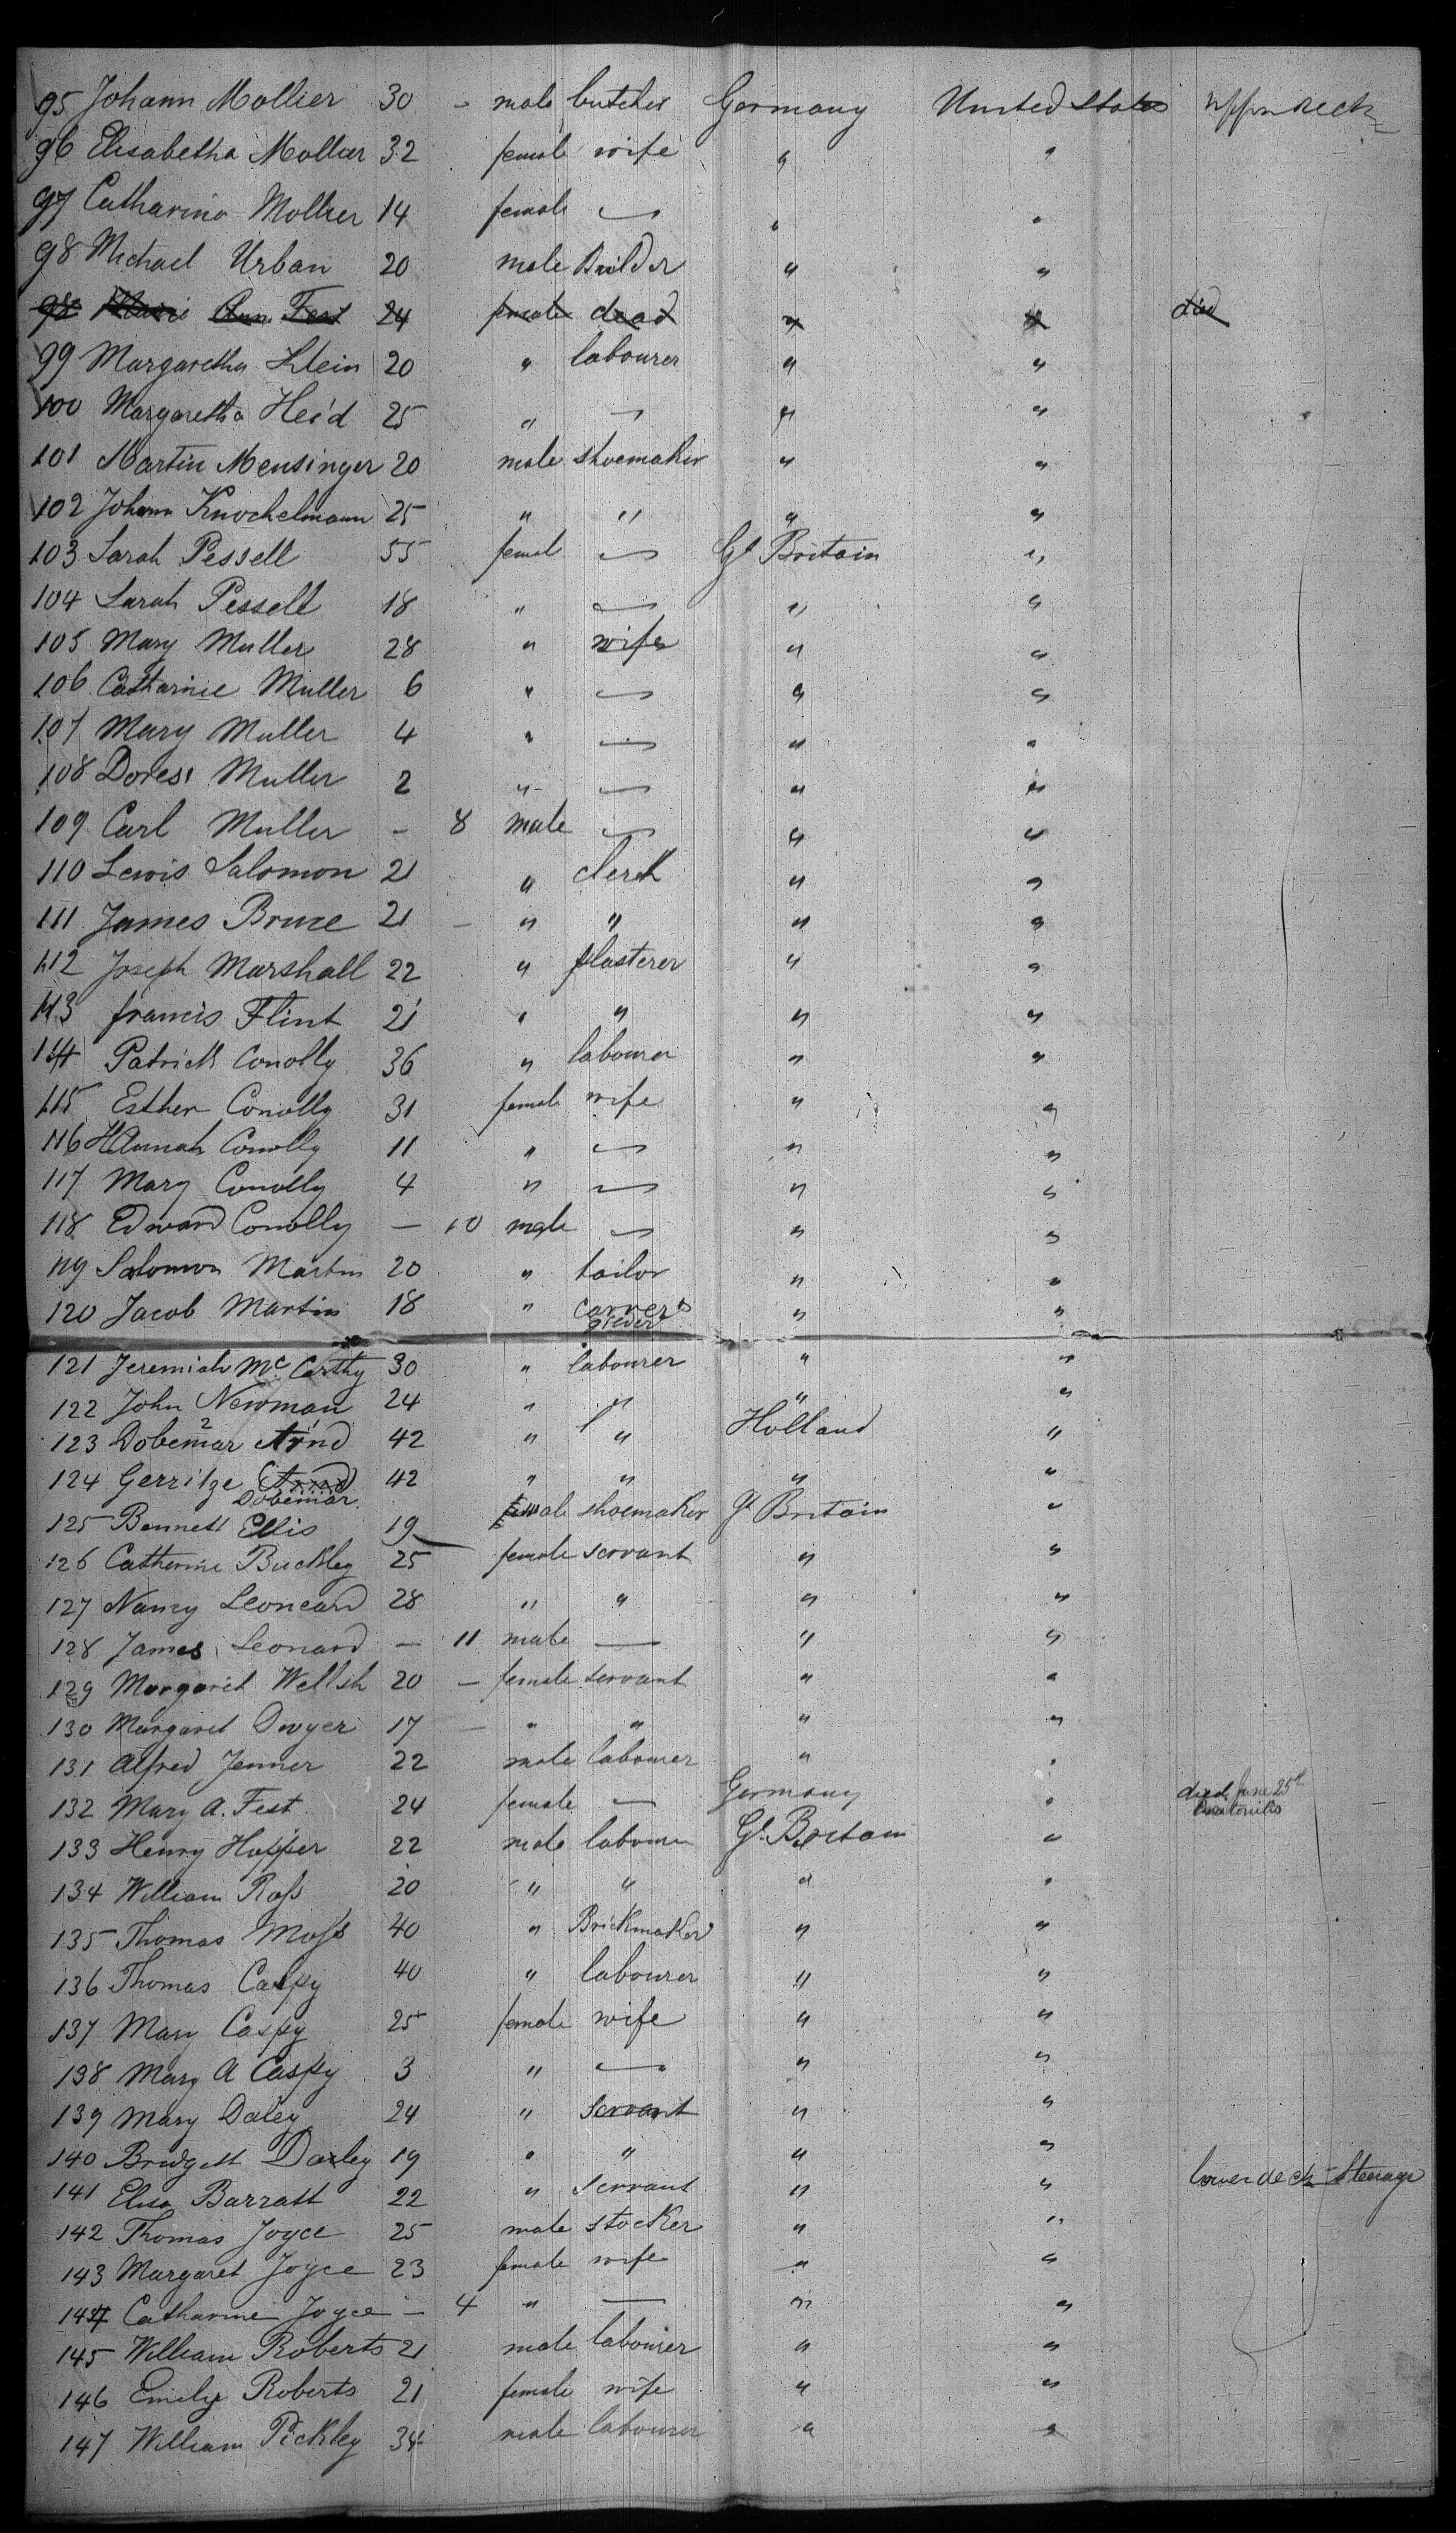 95 Johann Mollier 30 - male butcher Germany United States upper deck
96 Elisabetha Mollier 32 female wife " "
97 Catharina Mollier 14 female — " "
98 Michael Urban 20 male Builder " "
98 Marie Ann Fest 24 female dead " " died
99 Margaretha Klein 20 " labourer " "
100 Margaretha Heid 25 " — " "
101 Martin Mensinger 20 male shoemaker " "
102 Johann Knochelmann 25 " " " "
103 Sarah Pessell 55 female — Gt Britain "
104 Sarah Pessell 18 " — " "
105 Mary Muller 28 " wife " "
106 Catharine Muller 6 " — " "
107 Mary Muller 4 " — " "
108 Dores Muller 2 " — " "
109 Carl Muller - 8 male — " "
110 Lewis Salomon 21 " clerk " "
111 James Bruce 21 - " " " "
112 Joseph Marshall 22 " plasterer " "
113 francis Flint 21 " " " "
114 Patrick Conolly 36 " labourer " "
115 Esther Conolly 31 female wife " "
116 Hannah Conolly 11 " — " "
117 Mary Conolly 4 " — " "
118 Edward Conolly — 10 male — " "
119 Salomon Martin 20 " tailor " "
120 Jacob Martin 18 " carver " "
121 Jeremiah Mc Carthy 30 " labourer " "
122 John Newman 24 " " " "
123 Dobemar 2 Arnd 42 " " Holland "
124 Gerritze (Arnd) 42 " " " "
Dobemar
125 Bennett Ellis 19 male shoemaker Gt Britain "
126 Catherine Buckley 25 female servant " "
127 Nancy Leoneard 28 " " " "
128 James Leonard — 11 male — " "
129 Margaret Wellsh 20 - female servant " "
130 Margaret Dwyer 17 - " " " "
131 Alfred Jenner 22 male labourer " "
132 Mary A. Fest 24 female — Germany " died June 25th
133 Henry Hopper 22 male labourer Gt Britain "
134 William Ross 20 " " " "
135 Thomas Moss 40 " Brickmaker " "
136 Thomas Caspy 40 " labourer " "
137 Mary Caspy 25 female wife " "
138 Mary A Caspy 3 " — " "
139 Mary Daley 24 " servant " "
140 Bridgett Daley 19 " " " "
141 Elisa Barratt 22 " servant " " lower deck Steerage
142 Thomas Joyce 25 male stocker " "
143 Margaret Joyce 23 female wife " "
144 Catharine Joyce — 4 " — " "
145 William Roberts 21 male labourer " "
146 Emily Roberts 21 female wife " "
147 William Pickley 34 male labourer " "